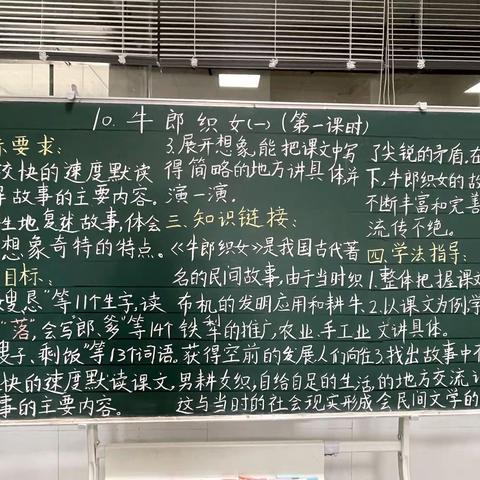 10. 牛郎织女(一) (第一课时)
标要求:
较快的速度默读
故事的主要内容。
生地复述故事,体会
想象奇特的特点。
目标:
嫂恳"等11个生字,读
"落,会写"郎、爹"等14个
嫂子、剩饭"等13个词语。
快的速度默读课文,
事的主要内容。
3.展开想象,能把课文中写
得简略的地方讲具体,并
演一演。
三.知识链接:
《牛郎织女》是我国古代著
名的民间故事,由于当时织
布机的发明应用和耕牛、
铁犁的推广,农业、手工业
获得空前的发展,人们向往
男耕女织,自给自足的生活,
这与当时的社会现实形成
了尖锐的矛盾,在
下,牛郎织女的故
不断丰富和完善
流传不绝。
四.学法指导:
1.整体把握课文
2.以课文为例,学
文讲具体。
3.找出故事中不
的地方交流,讨
会民间文学的